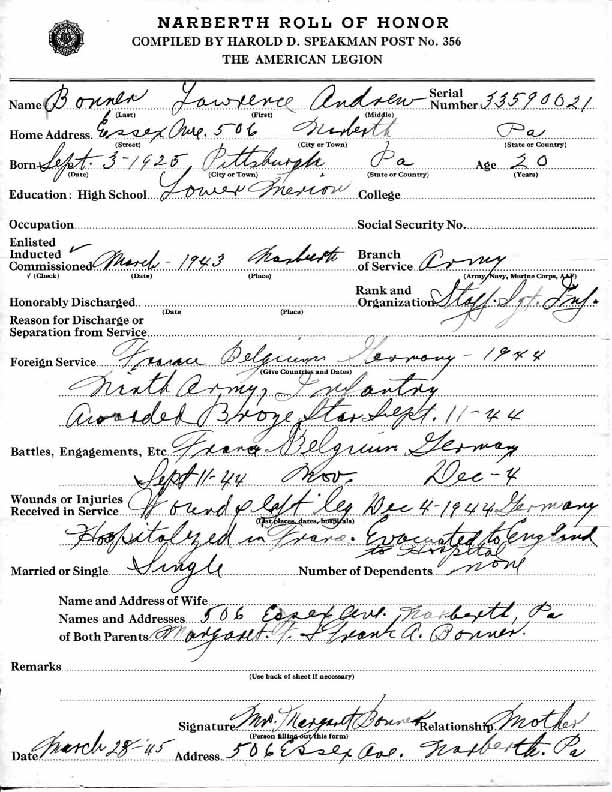 NARBERTH ROLL OF HONOR
COMPILED BY HAROLD D. SPEAKMAN POST No. 356
THE AMERICAN LEGION
Name Bonner Lawrence Andrew Serial Number 33590021
(Last) (First) (Middle)
Home Address Essex Ave. 506 Narberth Pa
(Street) (City or Town) (State or Country)
Born Sept. 3-1925 Pittsburgh Pa Age 20
(Date) (City or Town) (State or Country) (Years)
Education: High School Lower Merion College
Occupation Social Security No.
Enlisted
Inducted ✓ Branch
Commissioned March - 1943 Narberth of Service Army
√ (Check) (Date) (Place) (Army, Navy, Marine Corps, AAF)
Rank and
Honorably Discharged Organization Staff. Sgt. Inf.
(Date (Place)
Reason for Discharge or
Separation from Service
Foreign Service France Belgium Germany - 1944
(Give Countries and Dates)
Ninth Army, Infantry
Awarded Broze Star Sept. 11-44
Battles, Engagements, Etc. France Belgium Germany
Sept 11-44 Nov. Dec-4
Wounds or Injuries
Received in Service Wound left leg Dec 4-1944 Germany
(List places, dates, hospitals)
Hospitalized in Franc. Evacuated to England
to Hospital
Married or Single Single Number of Dependents none
Name and Address of Wife
Names and Addresses 506 Essex Ave. Narberth, Pa
of Both Parents Margaret. & Frank A. Bonner.
Remarks
(Use back of sheet if necessary)
Signature Margaret Bonner Relationship Mother
(Person filling out this form)
Date March 28-45 Address 506 Essex Ave. Narberth. Pa